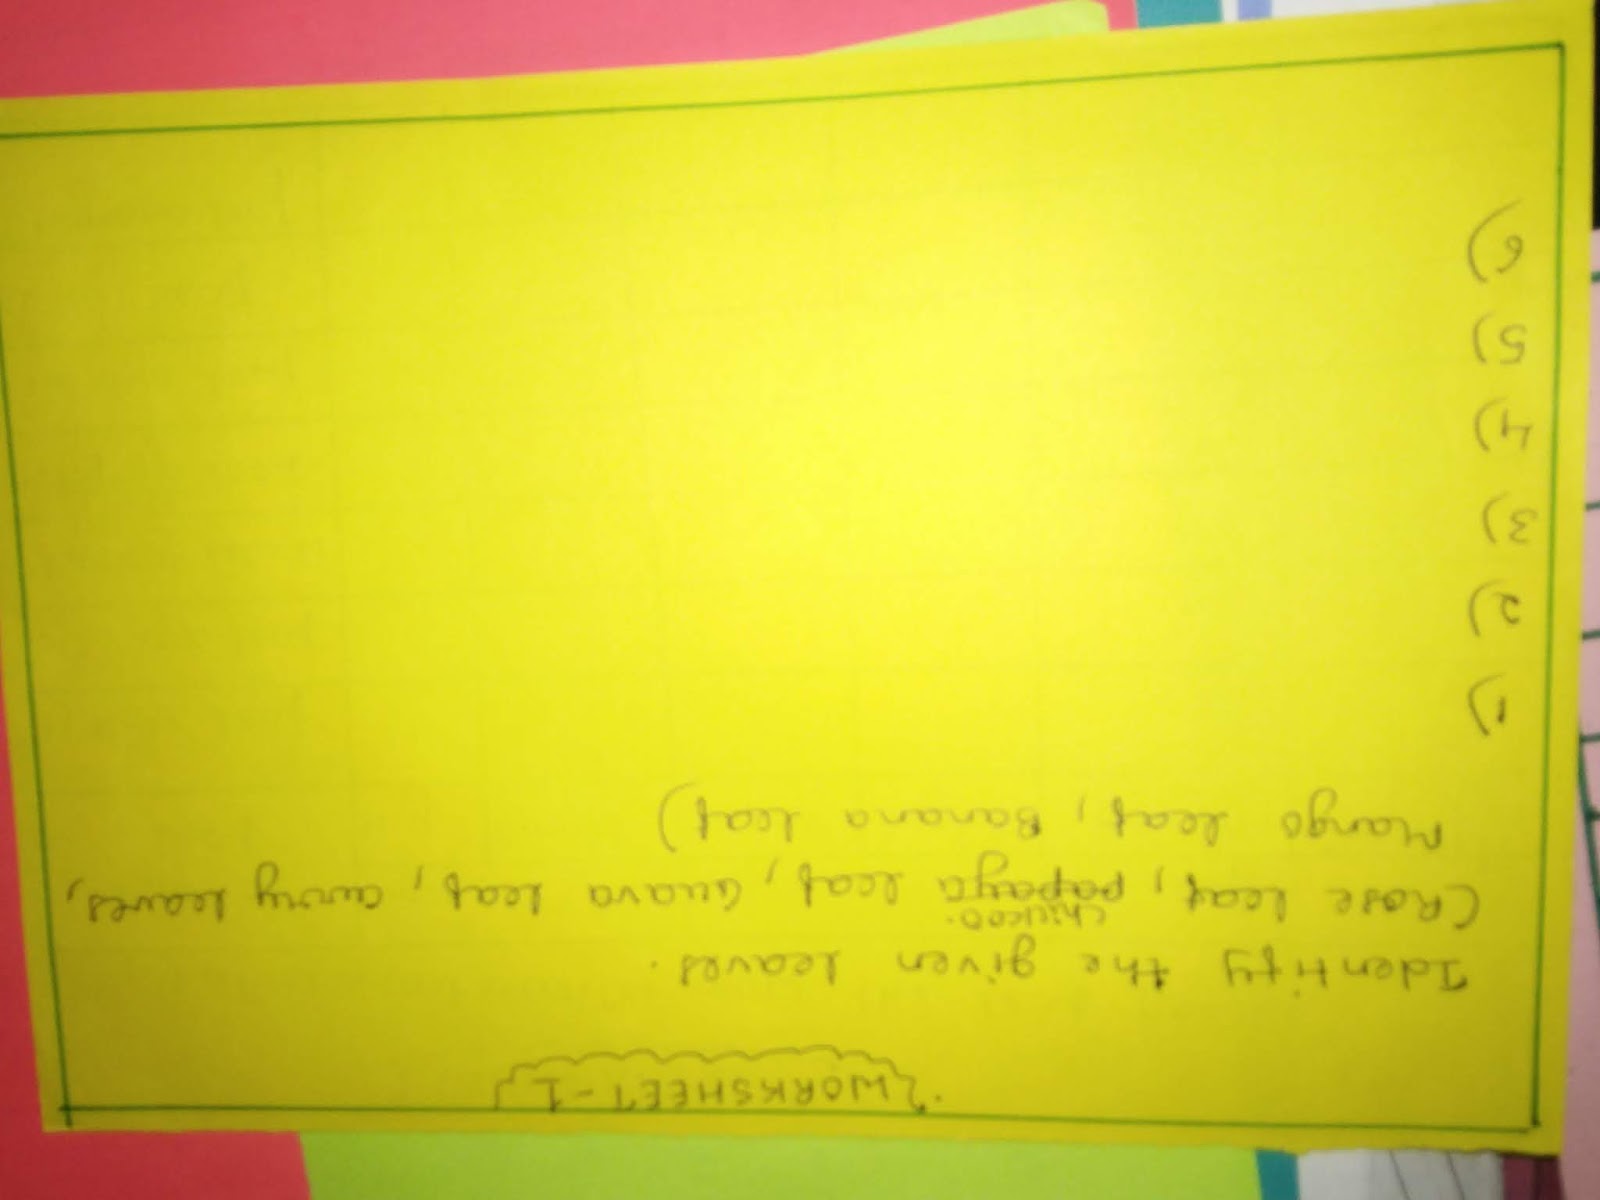 WORKSHEET-1
Identify the given leaves.
chickoo.
(Rose leaf, papaya leaf, Guava leaf, curry leaves,
Mango leaf, Banana leaf)
1)
2)
3)
4)
5)
6)